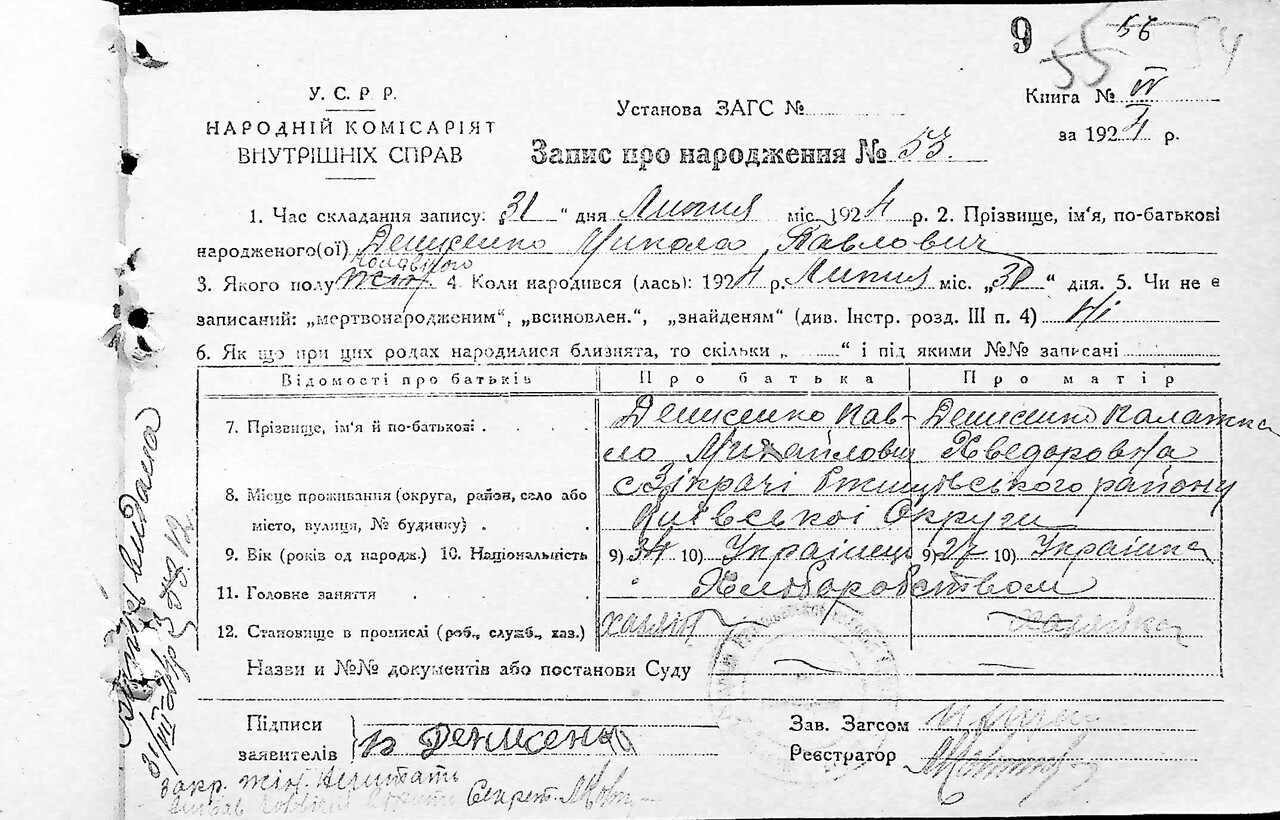 9 55 56 54
У. С. Р. Р.
НАРОДНІЙ КОМІСАРІЯТ
ВНУТРІШНІХ СПРАВ
Установа ЗАГС №
Книга № VI
за 1924 р.
Запис про народження № 53.
1. Час складання запису: „31“ дня Липня міс. 1924 р. 2. Прізвище, ім'я, по-батькові
народженого(ої) Денисенко Микола Павлович
чоловічого
3. Якого полу жін. 4. Коли народився (лась): 1924 р. Липня міс. „30“ дня. 5. Чи не є
записаний: „мертвонародженим“, „всиновлен.“, „знайденям“ (див. Інстр. розд. III п. 4) Ні
6. Як що при цих родах народилися близнята, то скільки „ “ і під якими №№ записані
Відомості про батьків Про батька Про матір
7. Прізвище, ім'я й по-батькові: Денисенко Пав- Денисенко Палажка
ло Михайлович Хведоровна
8. Місце проживання (округа, район, село або с Зікрачі Ржищівського району
місто, вулиця, № будинку) Київської Округи
9. Вік (років од народж.) 10. Національність 9) 34 10) Українець 9) 27 10) Українка
11. Головне заняття Хліборобством
12. Становище в промислі (роб., служб., хаз.) хазяїн хазяйка
Назви и №№ документів або постанови Суду
Підписи
заявителів П Денисенко
Зав. Загсом
Реєстратор
закр. жін. нещитать
Секрет.
видана
31/VII-24 р